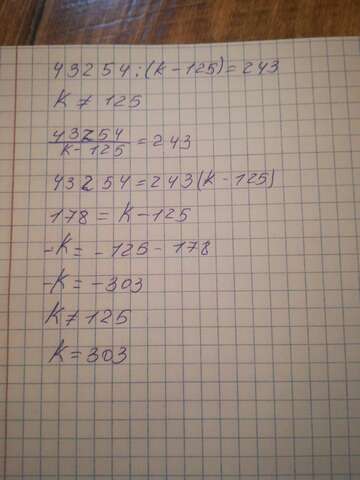 43254:(k-125)=243
k≠125
43254/k-125=243
43254=243(k-125)
178=k-125
-k=-125-178
-k=-303
k≠125
k=303